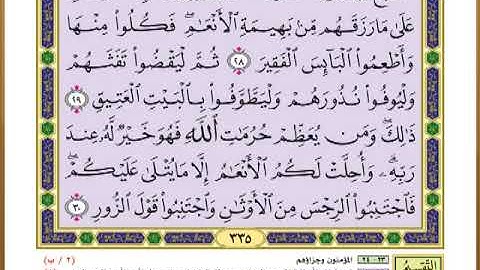 عَلَىٰ مَا رَزَقَهُم مِّنۢ بَهِيمَةِ ٱلْأَنْعَٰمِ ۖ فَكُلُوا۟ مِنْهَا
وَأَطْعِمُوا۟ ٱلْبَآئِسَ ٱلْفَقِيرَ ٢٨ ثُمَّ لْيَقْضُوا۟ تَفَثَهُمْ
وَلْيُوفُوا۟ نُذُورَهُمْ وَلْيَطَّوَّفُوا۟ بِٱلْبَيْتِ ٱلْعَتِيقِ ٢٩
ذَٰلِكَ وَمَن يُعَظِّمْ حُرُمَٰتِ ٱللَّهِ فَهُوَ خَيْرٌ لَّهُۥ عِندَ
رَبِّهِۦ ۗ وَأُحِلَّتْ لَكُمُ ٱلْأَنْعَٰمُ إِلَّا مَا يُتْلَىٰ عَلَيْكُمْ ۖ
فَٱجْتَنِبُوا۟ ٱلرِّجْسَ مِنَ ٱلْأَوْثَٰنِ وَٱجْتَنِبُوا۟ قَوْلَ ٱلزُّورِ ٣٠
٣٣٥
٢٣-٢٤ المؤمنون وجزاؤهم
(٢ / ب)